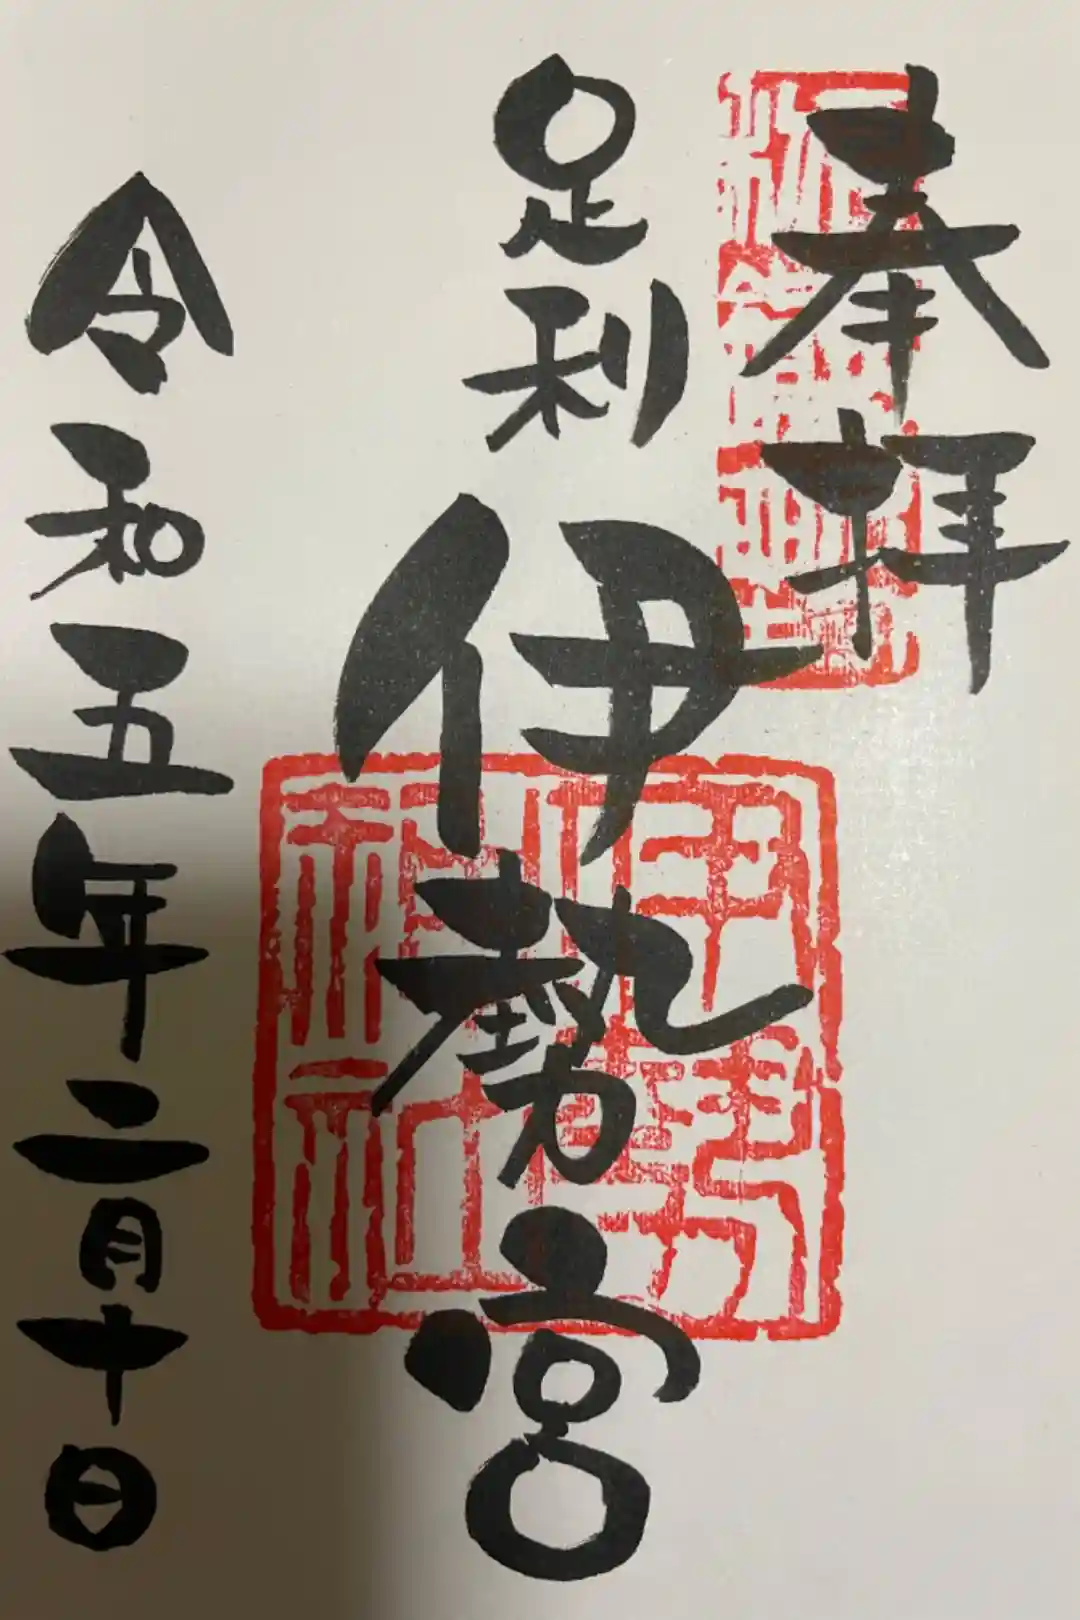 奉拝
足利
伊勢宮
伊勢宮神社
令和五年二月十日